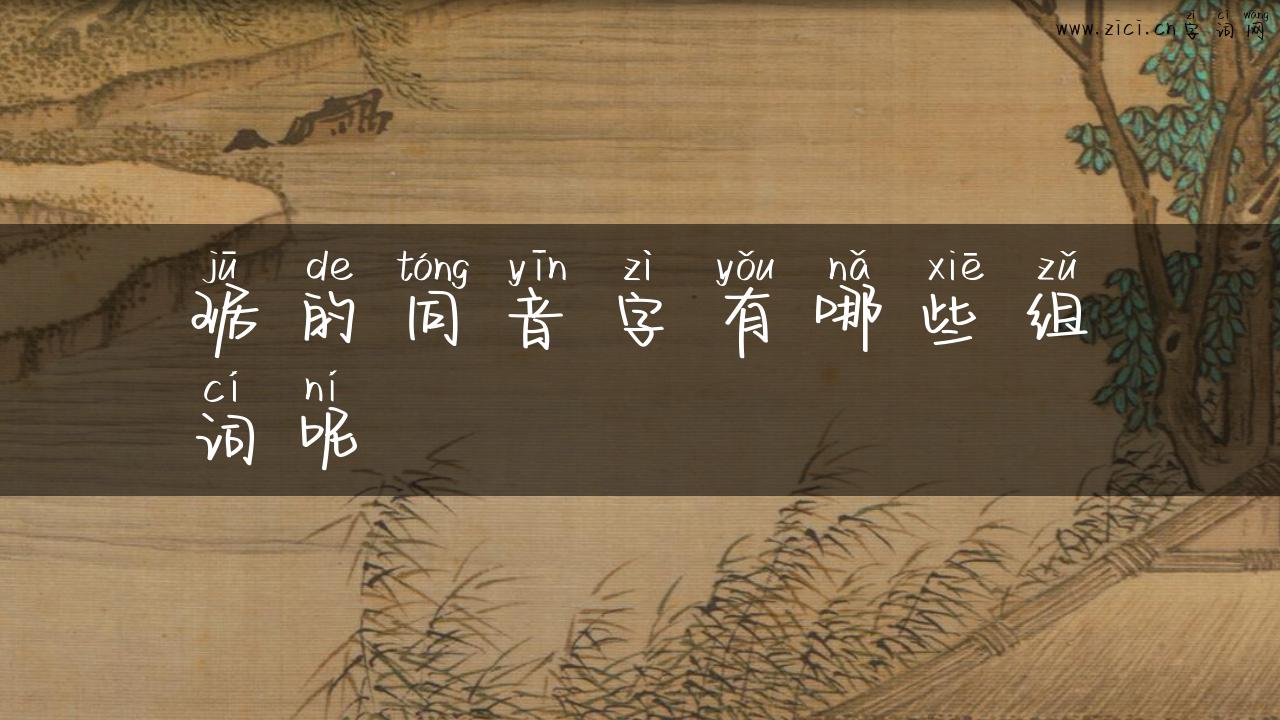 zì cí wǎng
www.zici.cn字词网
jū de tóng yīn zì yǒu nǎ xiē zǔ
琚的同音字有哪些组
cí ní
词呢